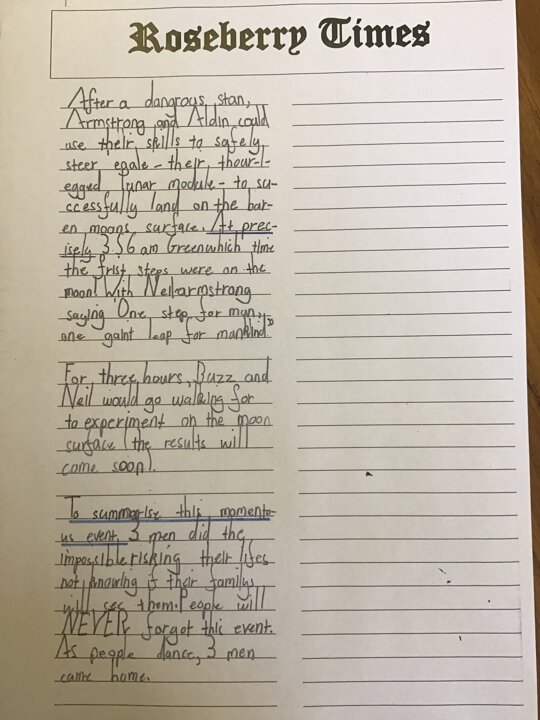 Roseberry Times
After a dangrous stan,
Armstrong and Aldin could
use their skills to safely
steer egale - their thour-l-
egged lunar module - to su-
ccessfully land on the bar-
en moons surface. At prec-
isely 3:56 am Greenwhich time
the frist steps were on the
moon! With Neil armstrong
saying One step for man,
one gaint leap for mankind"
For three hours, Buzz and
Neil would go walking for
to experiment on the moon
surface (the results will
come soon).
To summarise this momento-
us event, 3 men did the
impossible risking their lifes
not knowing if their familys
will see them. People will
NEVER forgot this event.
As people dance, 3 men
came home.